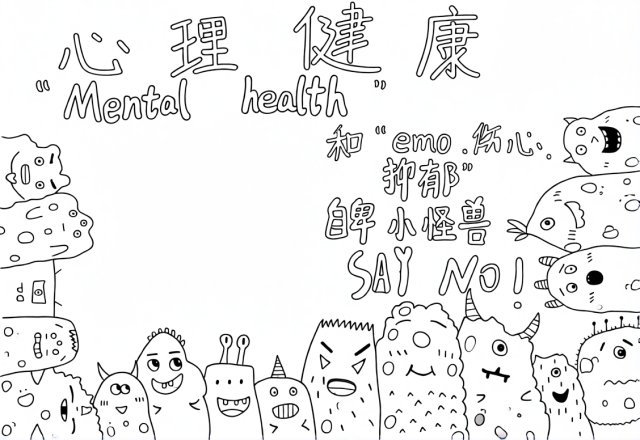 心理健康
"Mental health"
和"emo.伤心.
抑郁"
自卑小怪兽
SAY NO!